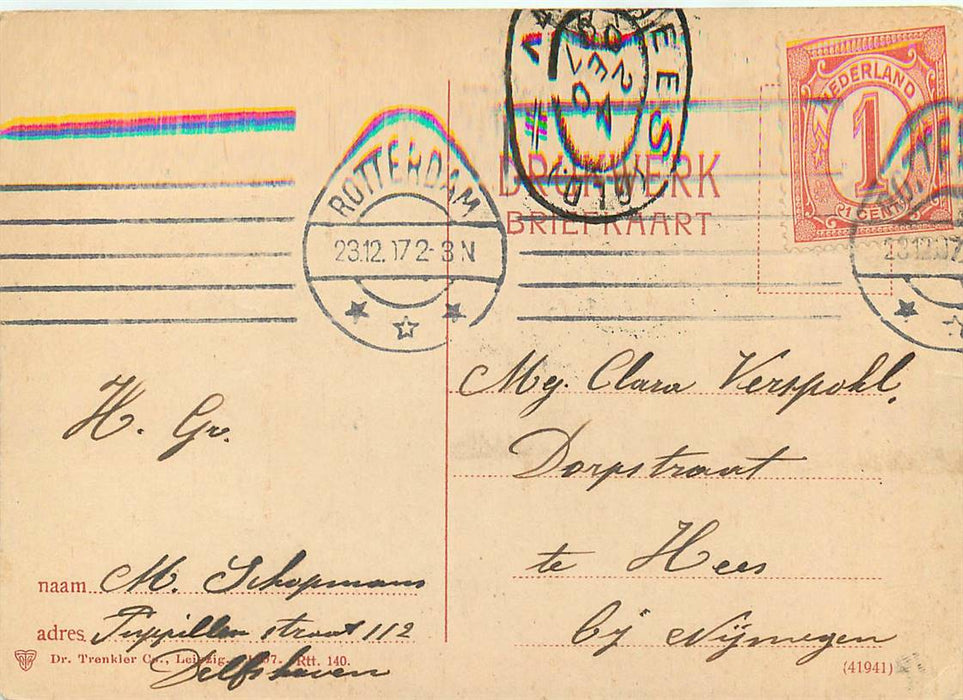 NEDERLAND
1
1 CENT
ROTTERDAM
23.12.17 2-3 N
DRUKWERK
BRIEFKAART
Mej. Clara Verspohl,
Dorpstraat
te Hees
bij Nijmegen
H. Gr.
naam M. Schopmans
adres Puppillen straat 112
Delfshaven
Dr. Trenkler Co., Leipzig. Rtt. 140.
(41941)